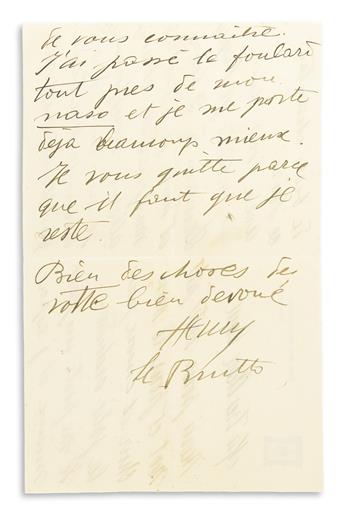 de vous connaitre.
J'ai passé le foulard
tout pres de mon
naso et je me porte
déja beaucoup mieux.
Je vous quitte parce
que il faut que je
reste.
Bien des choses de
votte bien devoué
Henry
le Brutto